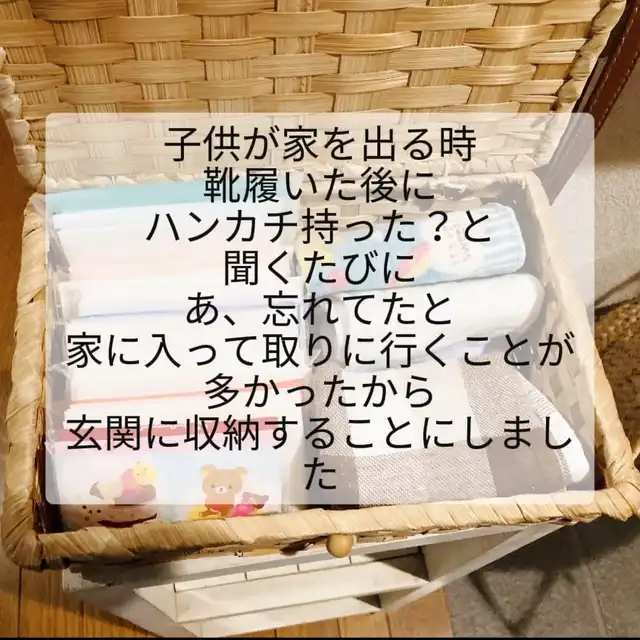 子供が家を出る時
靴履いた後に
ハンカチ持った？と
聞くたびに
あ、忘れてたと
家に入って取りに行くことが
多かったから
玄関に収納することにしまし
た